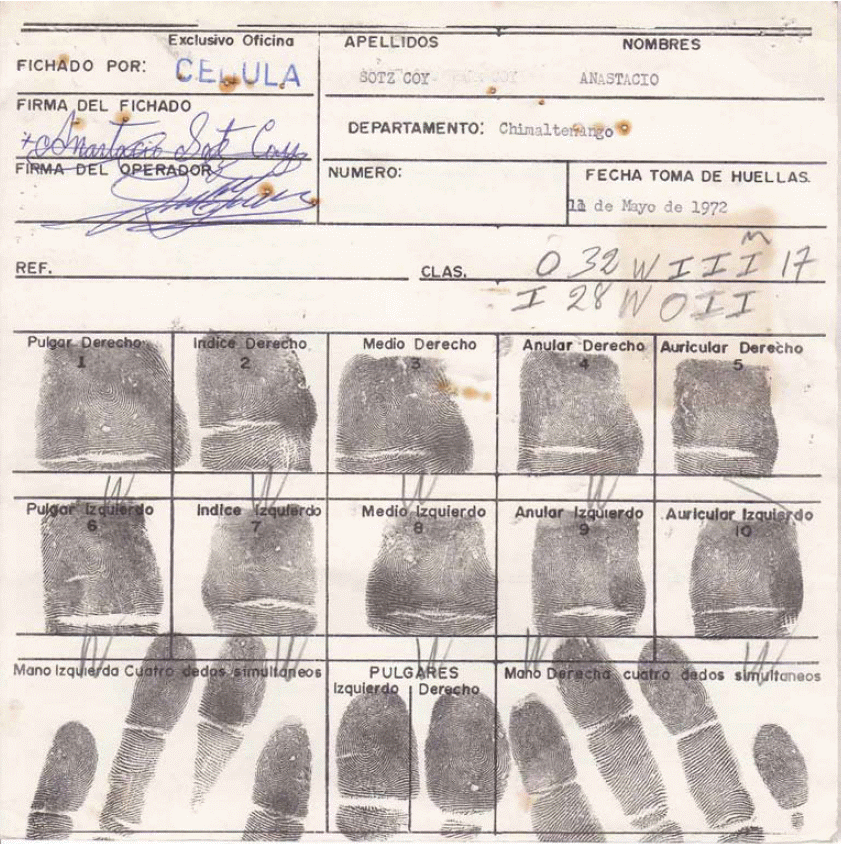 Exclusivo Oficina
FICHADO POR: CEDULA
APELLIDOS
NOMBRES
SOTZ COY
ANASTACIO
FIRMA DEL FICHADO
Anastacio Sotz Coy
DEPARTAMENTO: Chimaltenango
FIRMA DEL OPERADOR
NUMERO:
FECHA TOMA DE HUELLAS.
11 de Mayo de 1972
REF.
CLAS.
M
O 32 W I I I 17
I 28 W O I I
Pulgar Derecho
1
Indice Derecho
2
Medio Derecho
3
Anular Derecho
4
Auricular Derecho
5
W W W W \
Pulgar Izquierdo
6
Indice Izquierdo
7
Medio Izquierdo
8
Anular Izquierdo
9
Auricular Izquierdo
10
W W W W W
Mano Izquierda Cuatro dedos simultaneos
PULGARES
Izquierdo Derecho
Mano Derecha cuatro dedos simultaneos